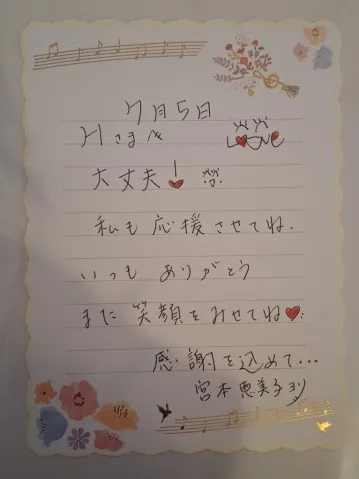 7月5日
Hさまへ LOVE
大丈夫!
私も応援させてね.
いつもありがとう
また笑顔をみせてね♥
感謝を込めて...
宮本恵美子より